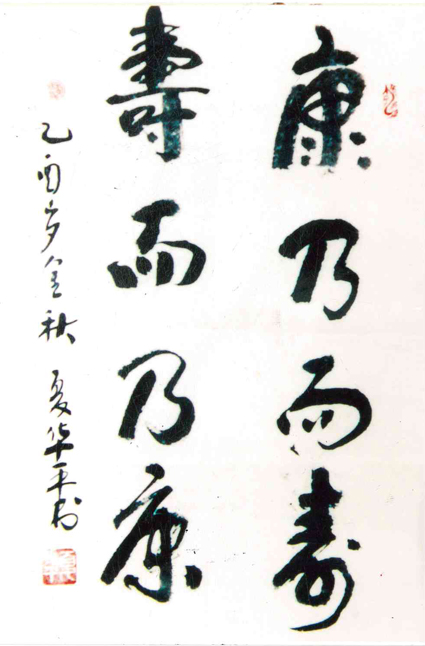 康乃而寿
寿而乃康
乙酉岁金秋 夏华平书